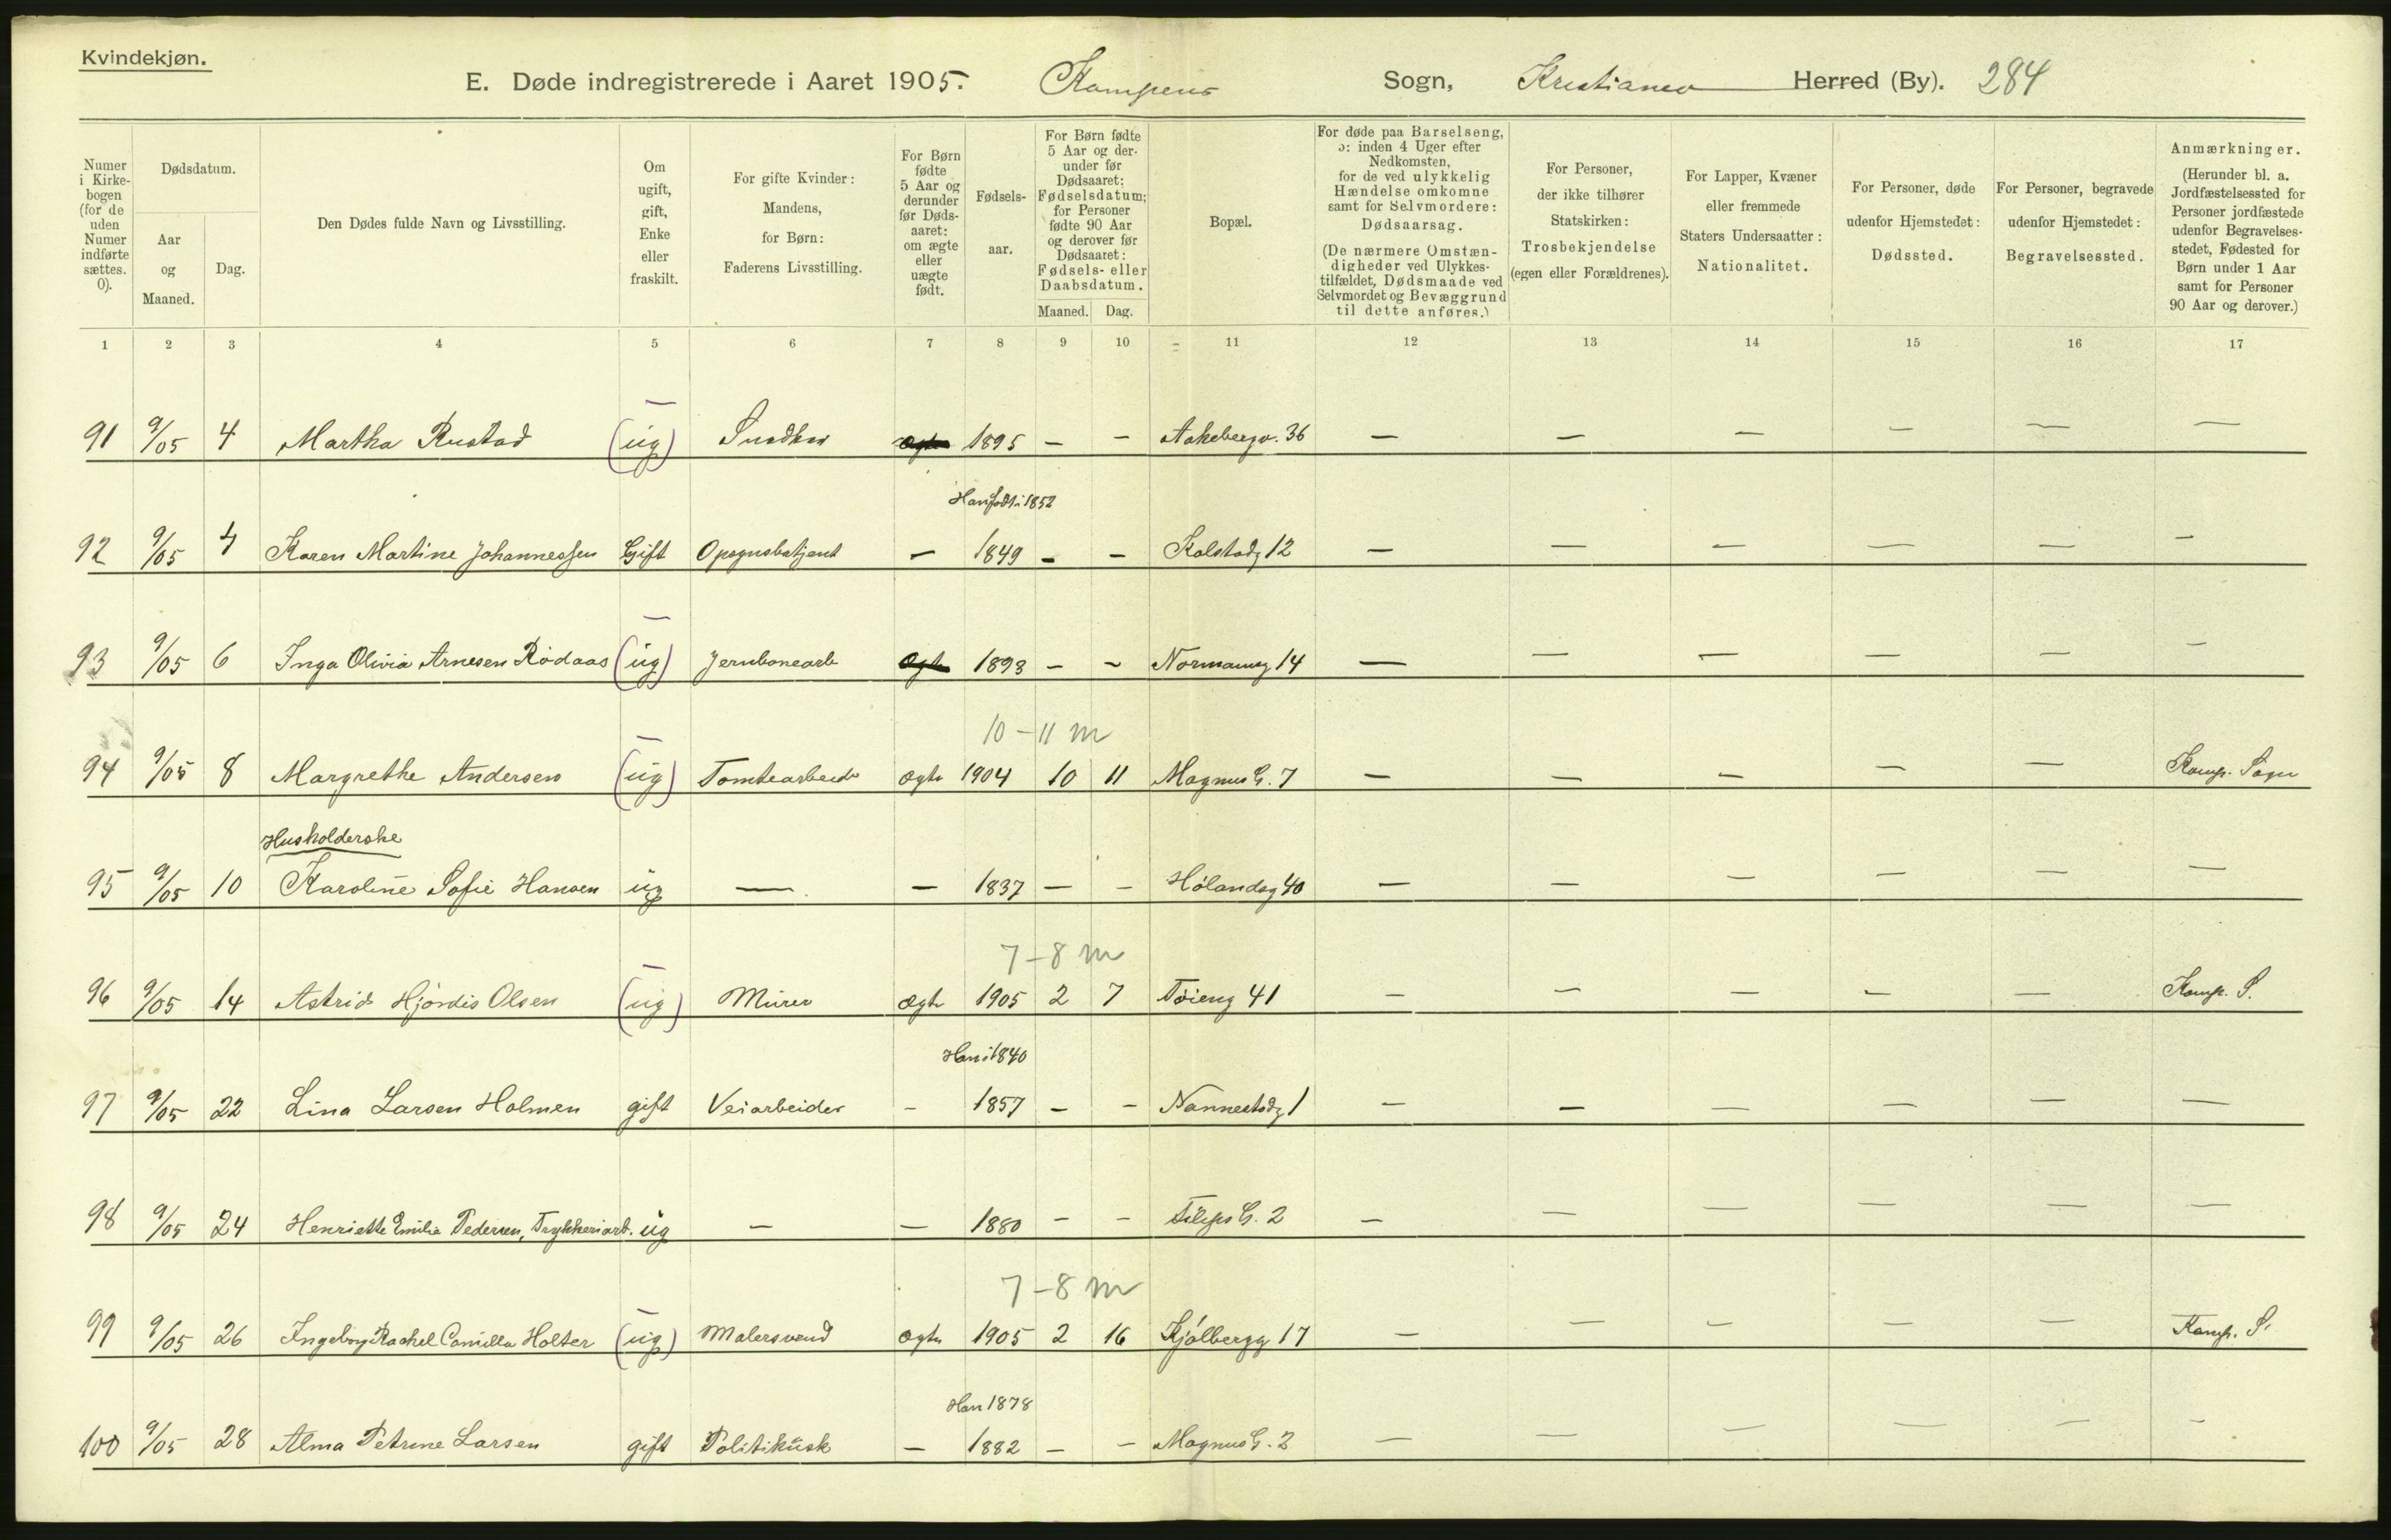 Kvindekjøn.
E. Døde indregistrerede i Aaret 1905. Kampens Sogn, Kristiania Herred (By). 284
Numer i Kirke-bogen (for de uden Numer indførte sættes. 0).
Dødsdatum.
Aar og Maaned.
Dag.
Den Dødes fulde Navn og Livsstilling.
Om ugift, gift, Enke eller fraskilt.
For gifte Kvinder: Mandens, for Børn: Faderens Livsstilling.
For Børn fødte 5 Aar og derunder før Døds-aaret: om ægte eller uægte født.
Fødsels-aar.
For Børn fødte 5 Aar og der-under før Dødsaaret: Fødselsdatum; for Personer fødte 90 Aar og derover før Dødsaaret: Fødsels- eller Daabsdatum.
Maaned. Dag.
Bopæl.
For døde paa Barselseng, ɔ: inden 4 Uger efter Nedkomsten, for de ved ulykkelig Hændelse omkomne samt for Selvmordere: Dødsaarsag. (De nærmere Omstæn-digheder ved Ulykkes-tilfældet, Dødsmaade ved Selvmordet og Bevæggrund til dette anføres.)
For Personer, der ikke tilhører Statskirken: Trosbekjendelse (egen eller Forældrenes).
For Lapper, Kvæner eller fremmede Staters Undersaatter: Nationalitet.
For Personer, døde udenfor Hjemstedet: Dødssted.
For Personer, begravede udenfor Hjemstedet: Begravelsessted.
Anmærkninger. (Herunder bl. a. Jordfæstelsessted for Personer jordfæstede udenfor Begravelses-stedet, Fødested for Børn under 1 Aar samt for Personer 90 Aar og derover.)
1 2 3 4 5 6 7 8 9 10 11 12 13 14 15 16 17
91 9/05 4 Martha Rustad (ug) Snedker ægte 1895 – – Aakebergv. 36 – – – – – –
Han født i 1852
92 9/05 4 Karen Martine Johannessen Gift Opsynsbetjent – 1849 – – Kolstadg 12 – – – – – –
93 9/05 6 Inga Olivia Arnesen Rødaas (ug) Jernbanearb ægte 1893 – – Normannsg 14 – – – – – –
10 – 11 m
94 9/05 8 Margrethe Andersen (ug) Tomtearbeider ægte 1904 10 11 Magnus G. 7 – – – – – Kamp. Sogn
Husholderske
95 9/05 10 Karoline Sofie Hansen ug – – 1837 – – Hølandsg 40 – – – – – –
7 – 8 m
96 9/05 14 Astrid Hjørdis Olsen (ug) Murer ægte 1905 2 7 Tøieng 41 – – – – – Kamp. S.
Han i 1840
97 9/05 22 Lina Larsen Holmen gift Veiarbeider – 1857 – – Nannestadg 1 – – – – – –
98 9/05 24 Henriette Emilie Pedersen, Trykkeriarb. ug – – 1880 – – Filips G. 2 – – – – – –
7 – 8 m
99 9/05 26 Ingeborg Rachel Camilla Holter (ug) Malersvend ægte 1905 2 16 Kjølbergg 17 – – – – – Kamp. S.
Han 1878
100 9/05 28 Alma Petrine Larsen gift Politikusk – 1882 – – Magnus G. 2 – – – – – –